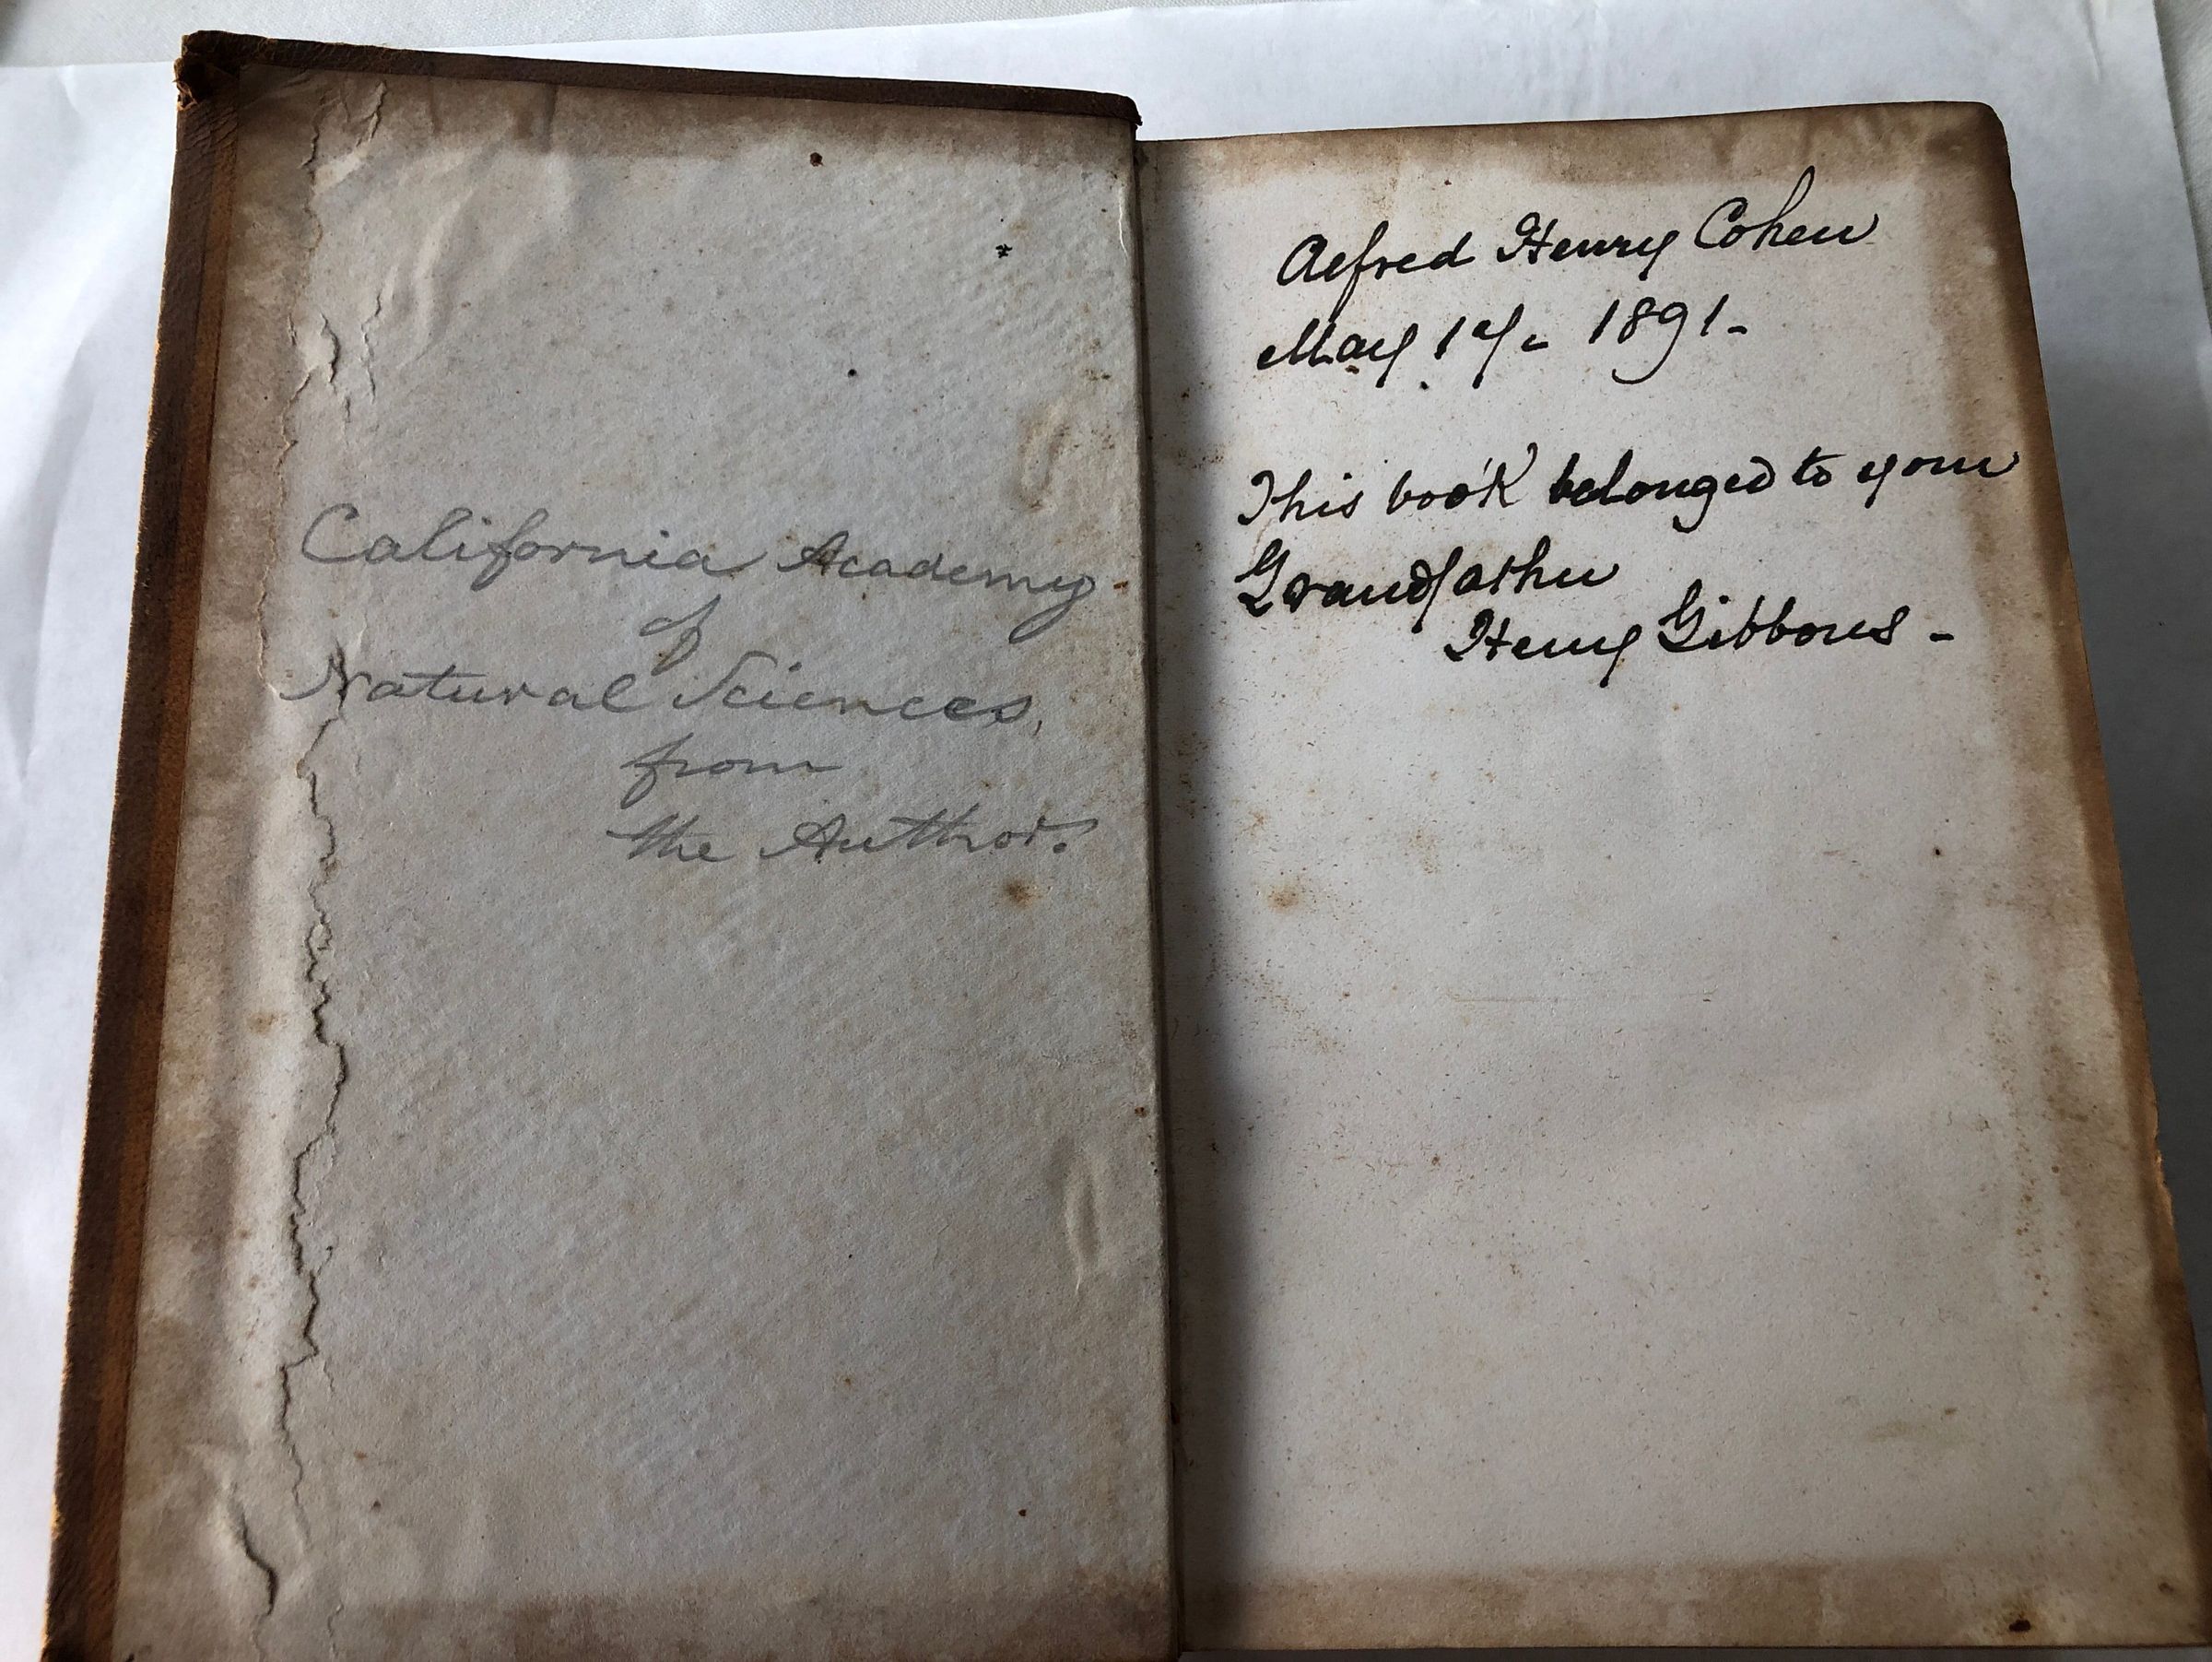 California Academy
of
Natural Sciences,
from
the Author.
Alfred Henry Cohen
May 1st/- 1891-
This book belonged to your
Grandfather
Henry Gibbons -